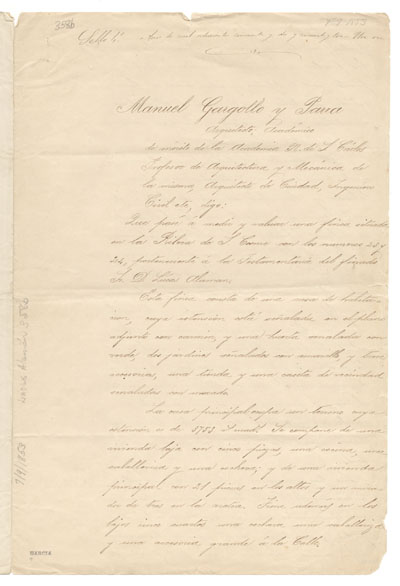 3586
Sello 6º
Manuel Gorgollo y Parra
Arquitecto, Académico
de mérito de la Academia N. de S. Carlos
Profesor de Arquitectura y Mecánica de
la misma, Arquitecto de Ciudad, Ingeniero
Civil etc, digo:
Que pasé á medir y valuar una finca situada
en la Ribera de S. Cosme con los números 23 y
24, perteneciente á la Testamentaría del finado
Sr. D. Lucas Alaman.
Esta finca consta de una casa de habita-
cion, cuya extension está señalada en el plano
adjunto con carmin, y una huerta señalada con
verde, dos jardines señalados con amarillo y tres
accesorias, una tienda y una casita de vecindad
señaladas con morado.
La casa principal ocupa un terreno cuya
estension es de 3753 Se compone de una
vivienda baja con piezas, una cocina, una
caballeriza y una cochera; y de una vivienda
principal con 21 piezas en los altos y un mira-
dor de tres en la azotea. Tiene además en los
bajos cuartos una cochera una caballeriza
y una accesoria grande á la Calle.
Lucas Alamán 3586
GARCIA